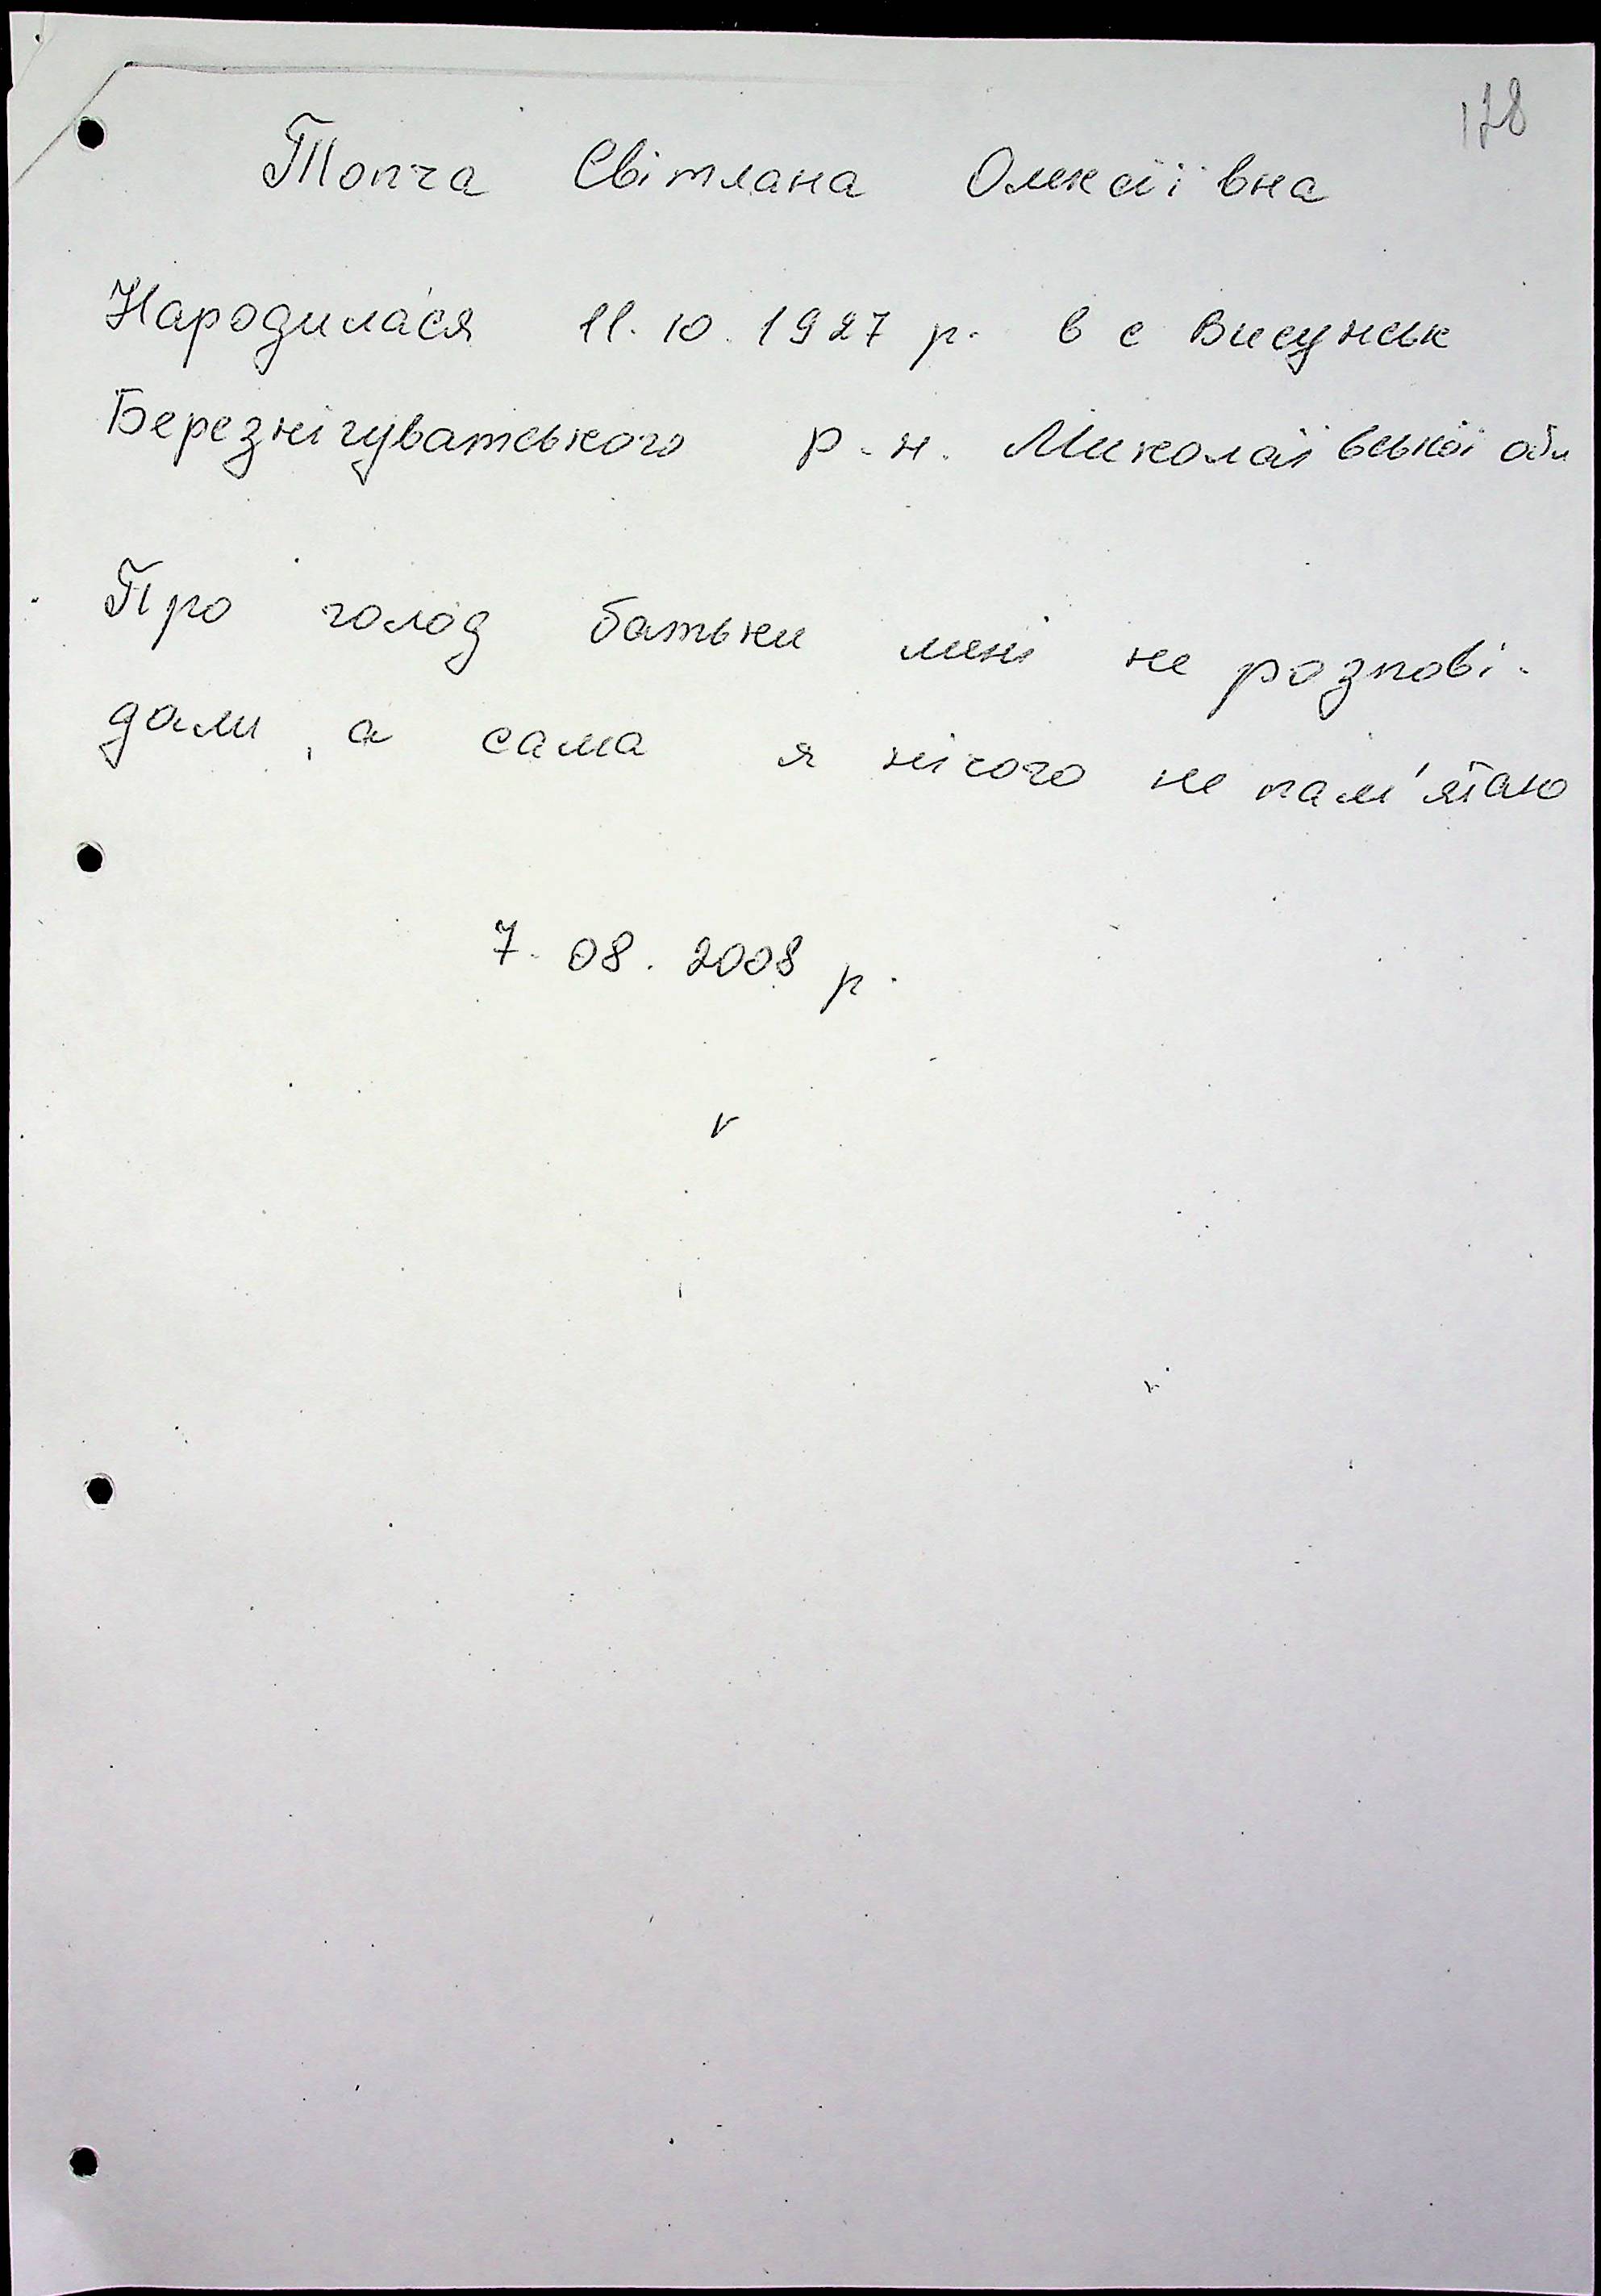 178
Топча Світлана Олексіївна
Народилася 11.10.1927 р. в с Висунськ
Березнігуватського р.н. Миколаївської обл
Про голод батьки мені не розпові-
дали, а сама я нічого не пам'ятаю
7.08.2008 р.